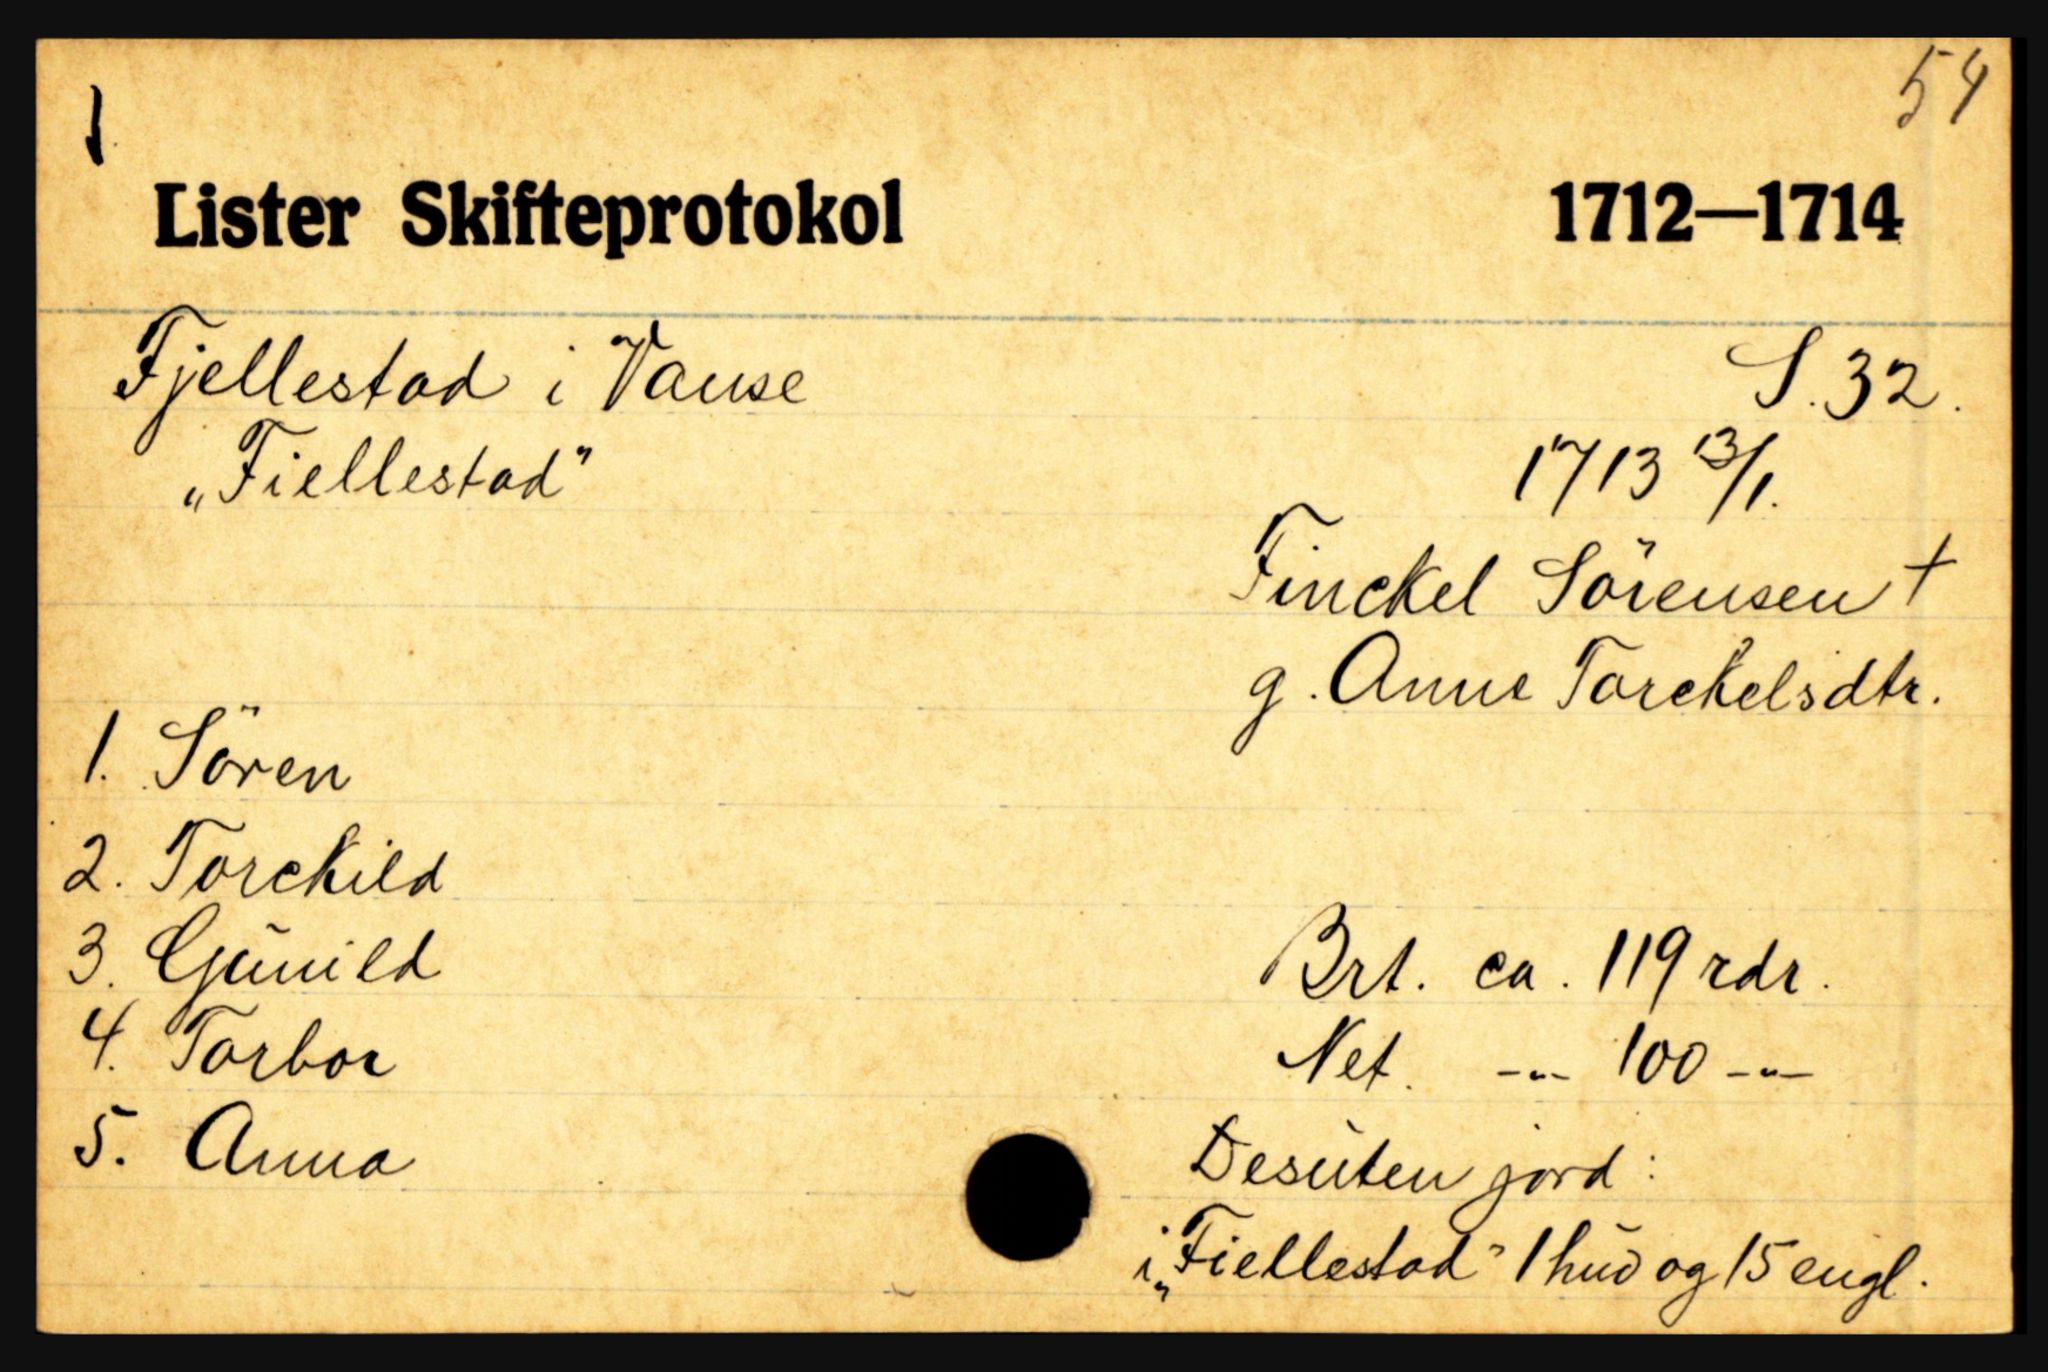 54
1
Lister Skifteprotokol 1712—1714
Fjellestad i Vanse S. 32.
„Fiellestad" 1713 13/1.
Finckel Sörensen +
g. Anne Torckelsdtr.
1. Sören
2. Torckild
3. Gunild Brt. ca. 119 rdr.
4. Torbor Net. -"- 100 -"-
5. Anna Desuten jord:
i „Fiellestad" 1 hud og 15 engl.